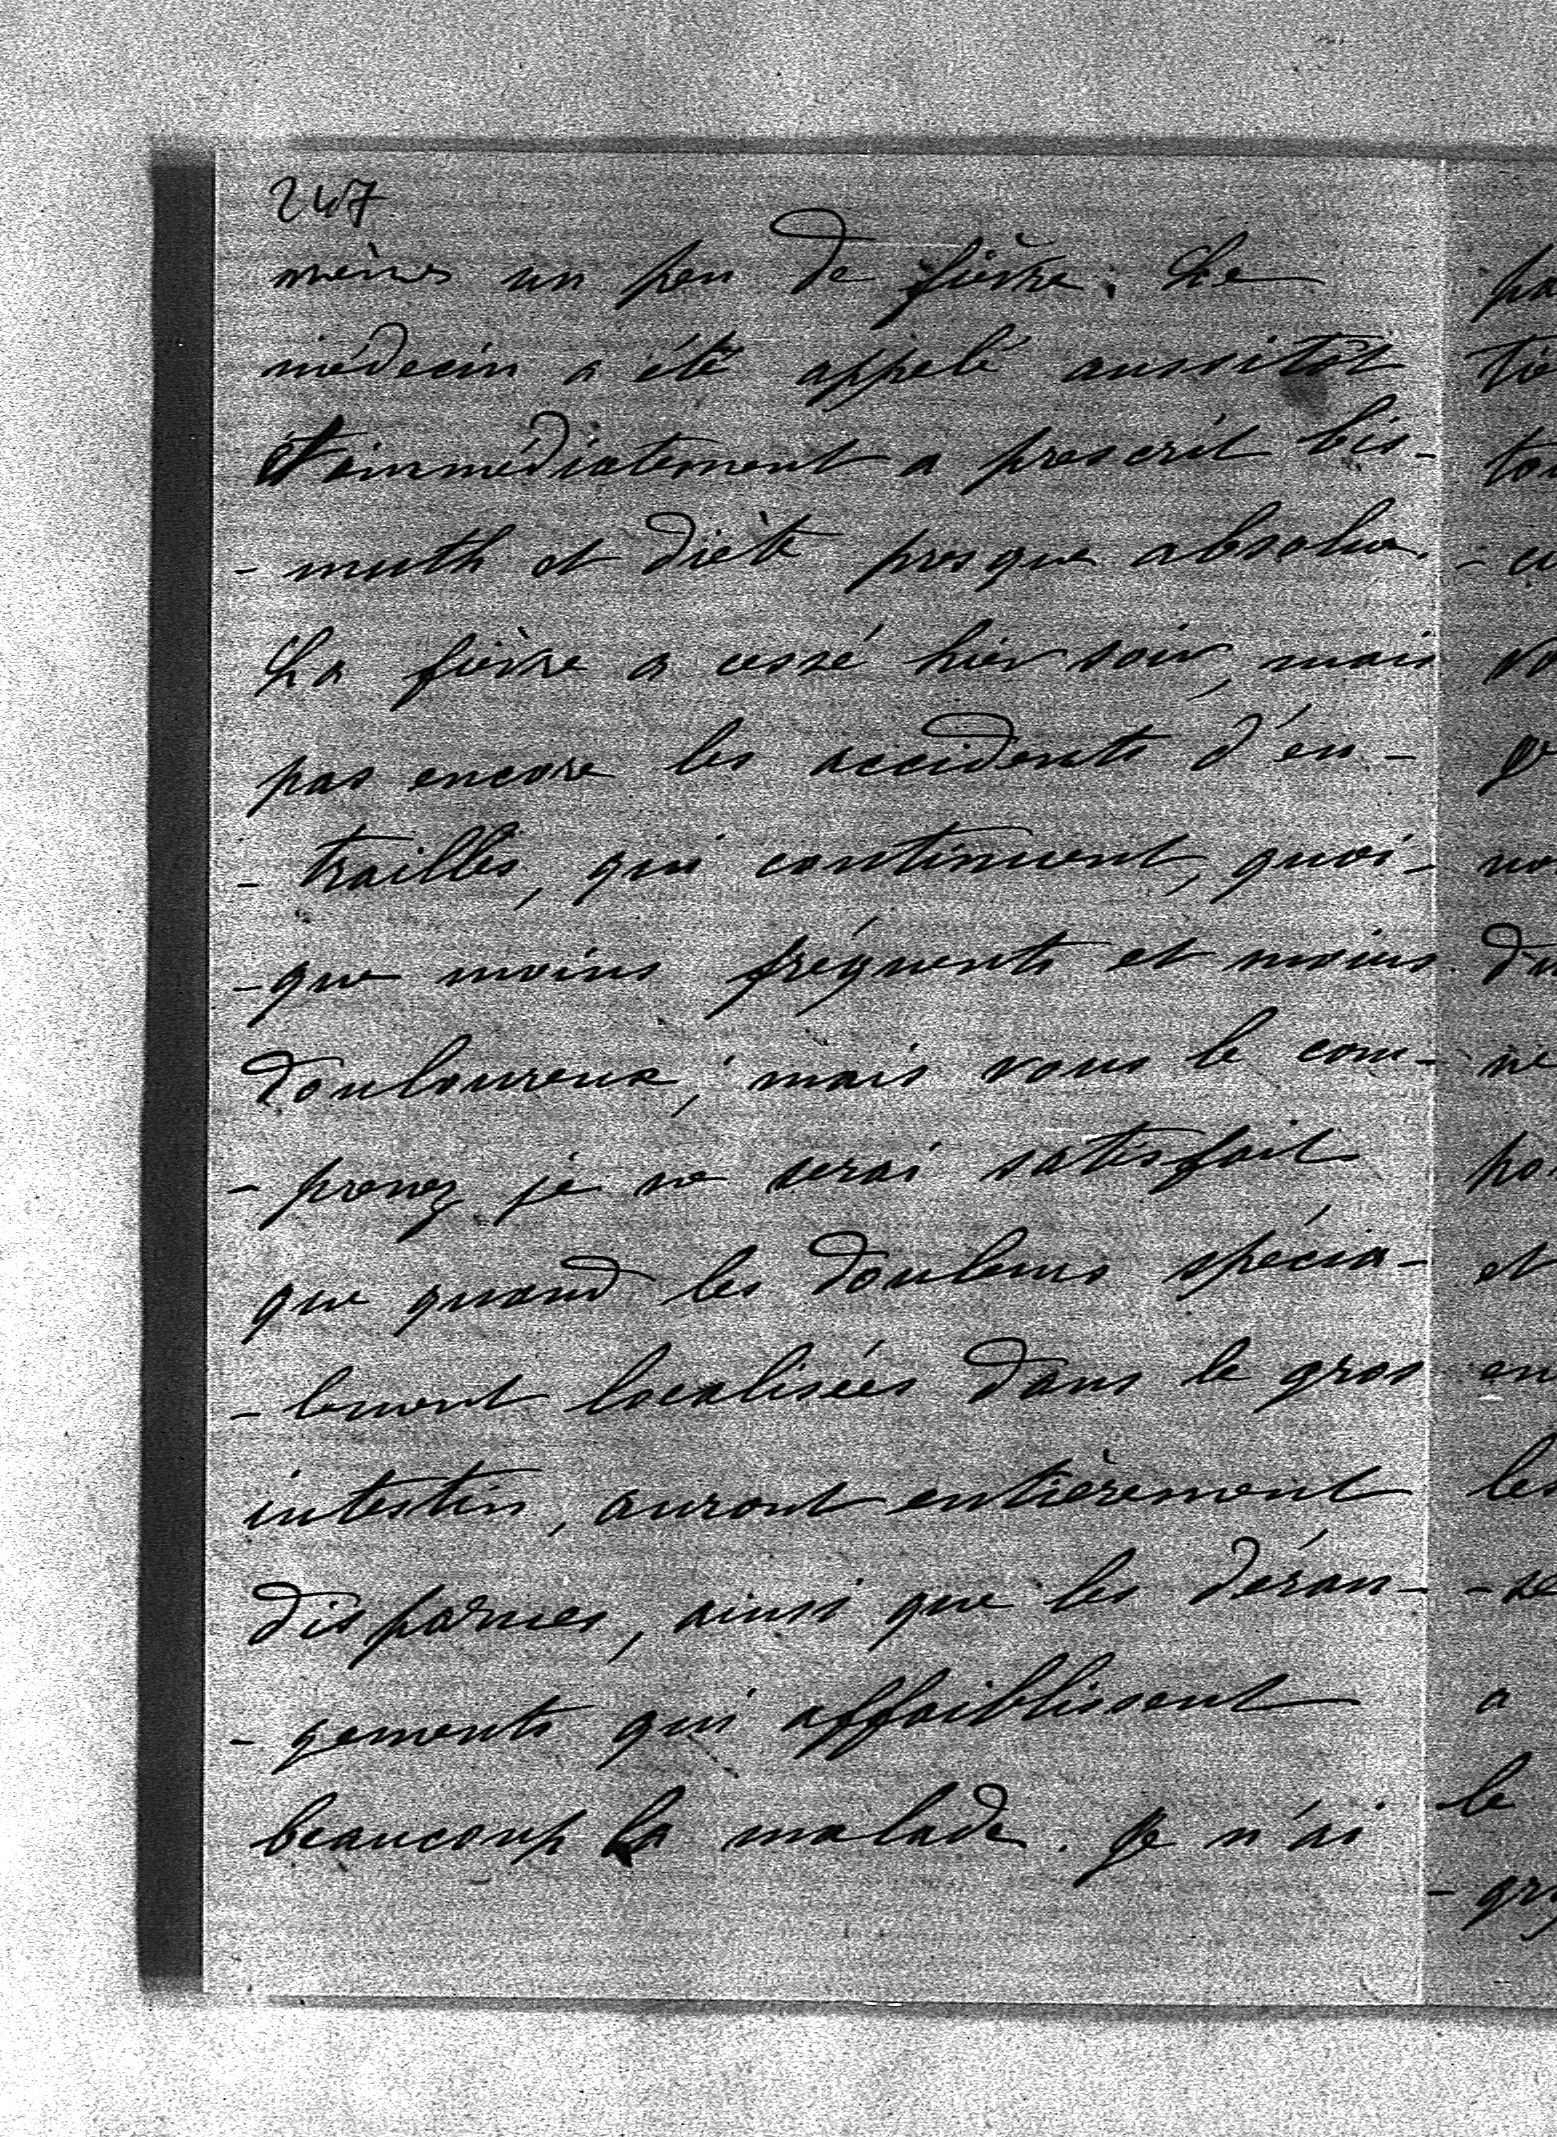 247
même un peu de fièvre. Le
médecin a été appelé aussitôt
et immédiatement a prescrit bis-
-muth et diète presque absolue.
La fièvre a cessé hier soir, mais
pas encore les accidents d'en-
-trailles, qui continuent, quoi-
-que moins fréquents et moins
douloureux ; mais vous le com-
-prenez je ne serai satisfait
que quand les douleurs spécia-
-lement localisées dans le gros
intestin, auront entièrement
disparues, ainsi que les déran-
-gements qui affaiblissent
beaucoup la malade. Je n'ai